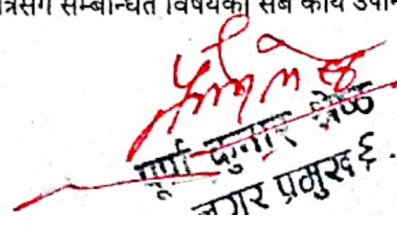 त्रसँग सम्बन्धित विषयको सबै कार्य उपान
पूर्ण कुमार श्रेष्ठ
नगर प्रमुख